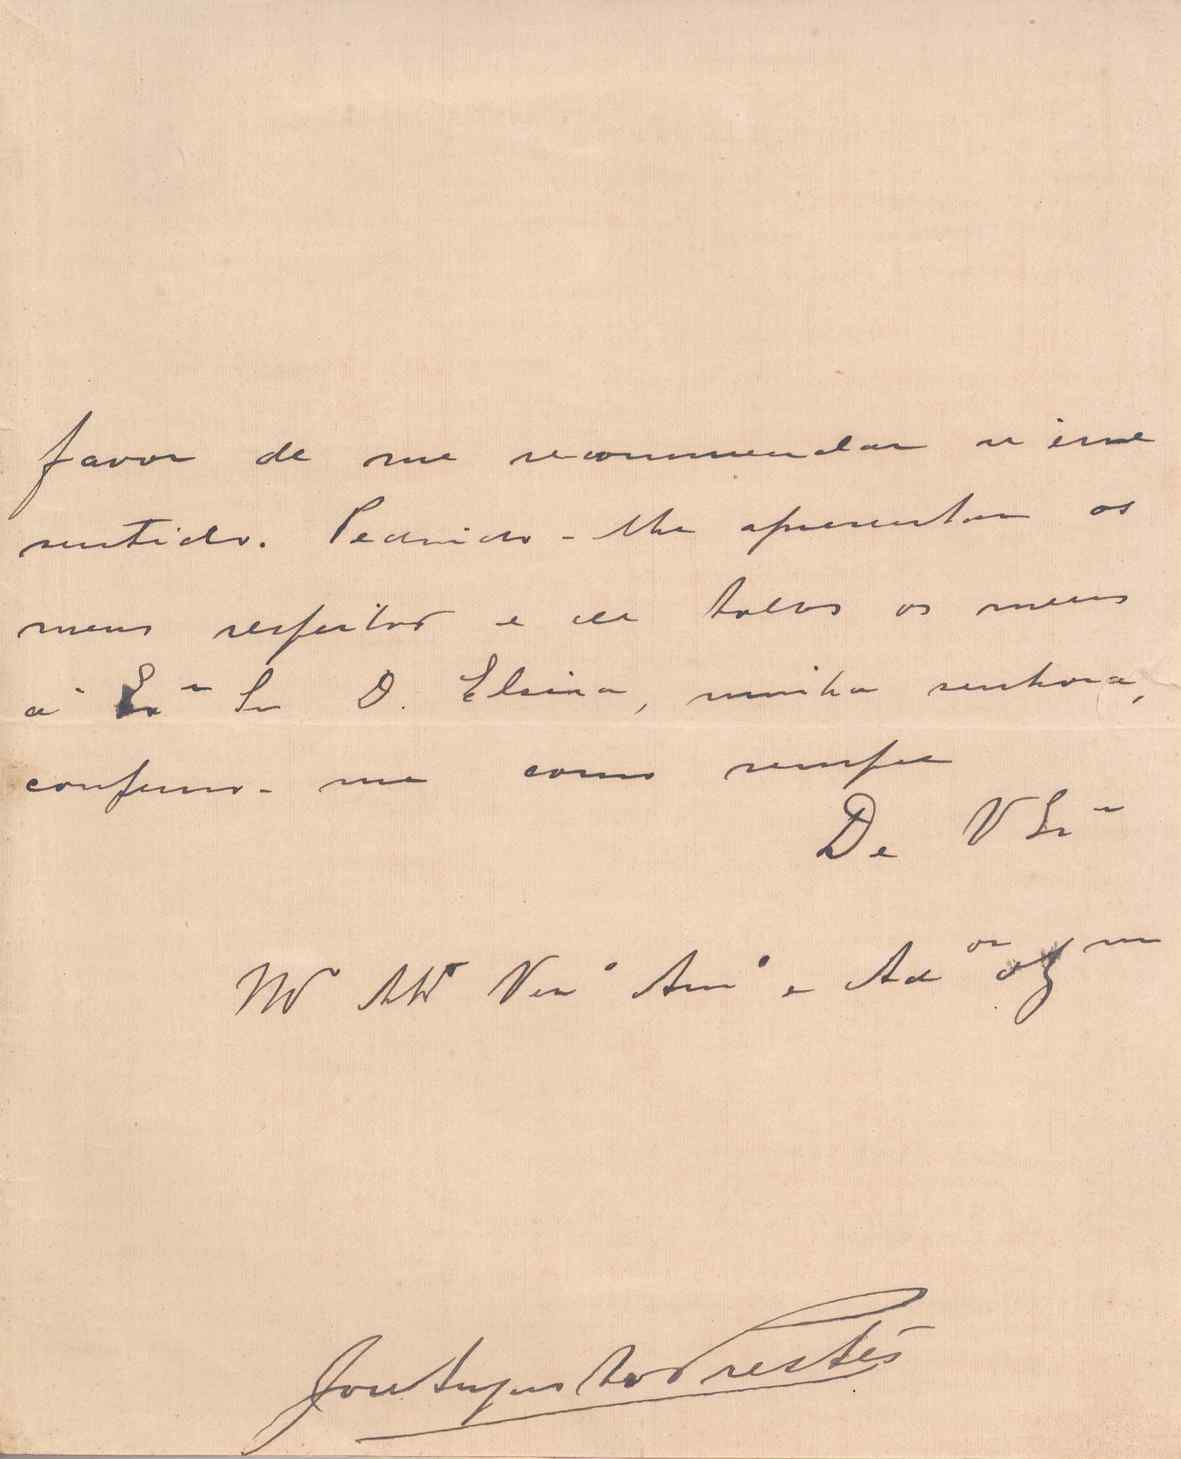 favor de me recommendar n'esse
sentido. Pedindo-lhe apresentar os
meus respeitos e de todos os meus
á Exª Srª D. Elsina, minha senhora,
confesso-me como sempre
De V Exª
Mtº Attº Venº Amº e Adºr
José Augusto Prestes